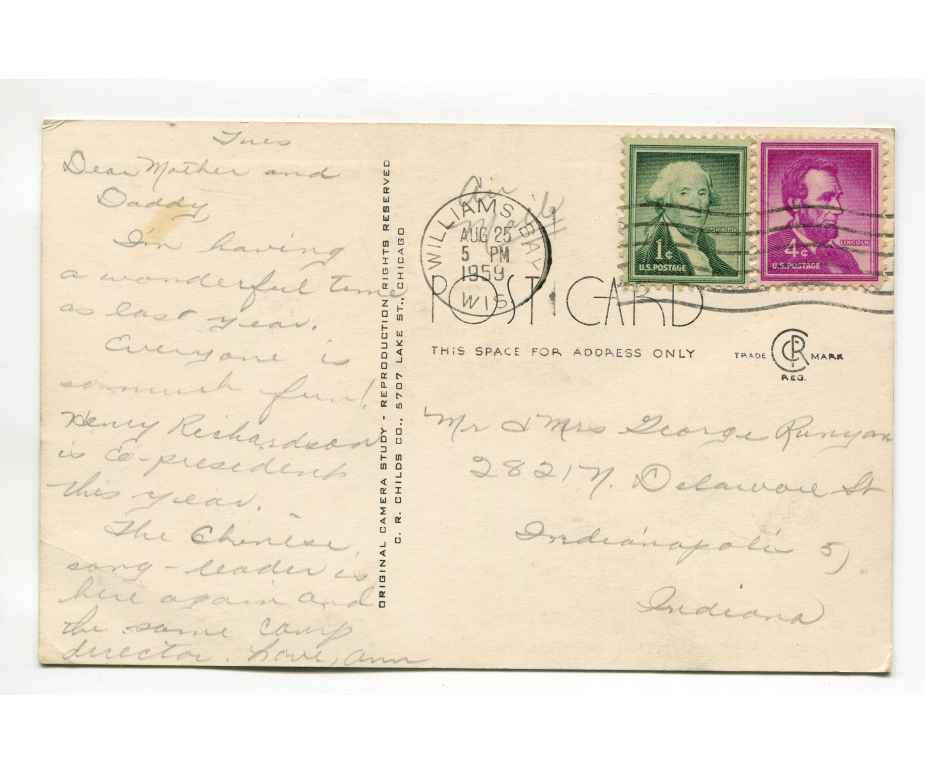 Tues
Dear Mother and
Daddy
I'm having
a wonderful time
as last year.
Everyone is
so much fun!
Henry Richardson
is co-president
this year.
The Chinese
song-leader is
here again and
the same camp
director. Love, Ann
ORIGINAL CAMERA STUDY - REPRODUCTION RIGHTS RESERVED
C. R. CHILDS CO., 5707 LAKE ST., CHICAGO
Air
Mail
WILLIAMS BAY
AUG 25
5 PM
1959
WIS.
1¢
WASHINGTON
U.S. POSTAGE
4¢
LINCOLN
U.S. POSTAGE
POST CARD
THIS SPACE FOR ADDRESS ONLY
TRADE CRC MARK
REG.
Mr & Mrs George Runyan
2821 N. Delaware St
Indianapolis 5,
Indiana